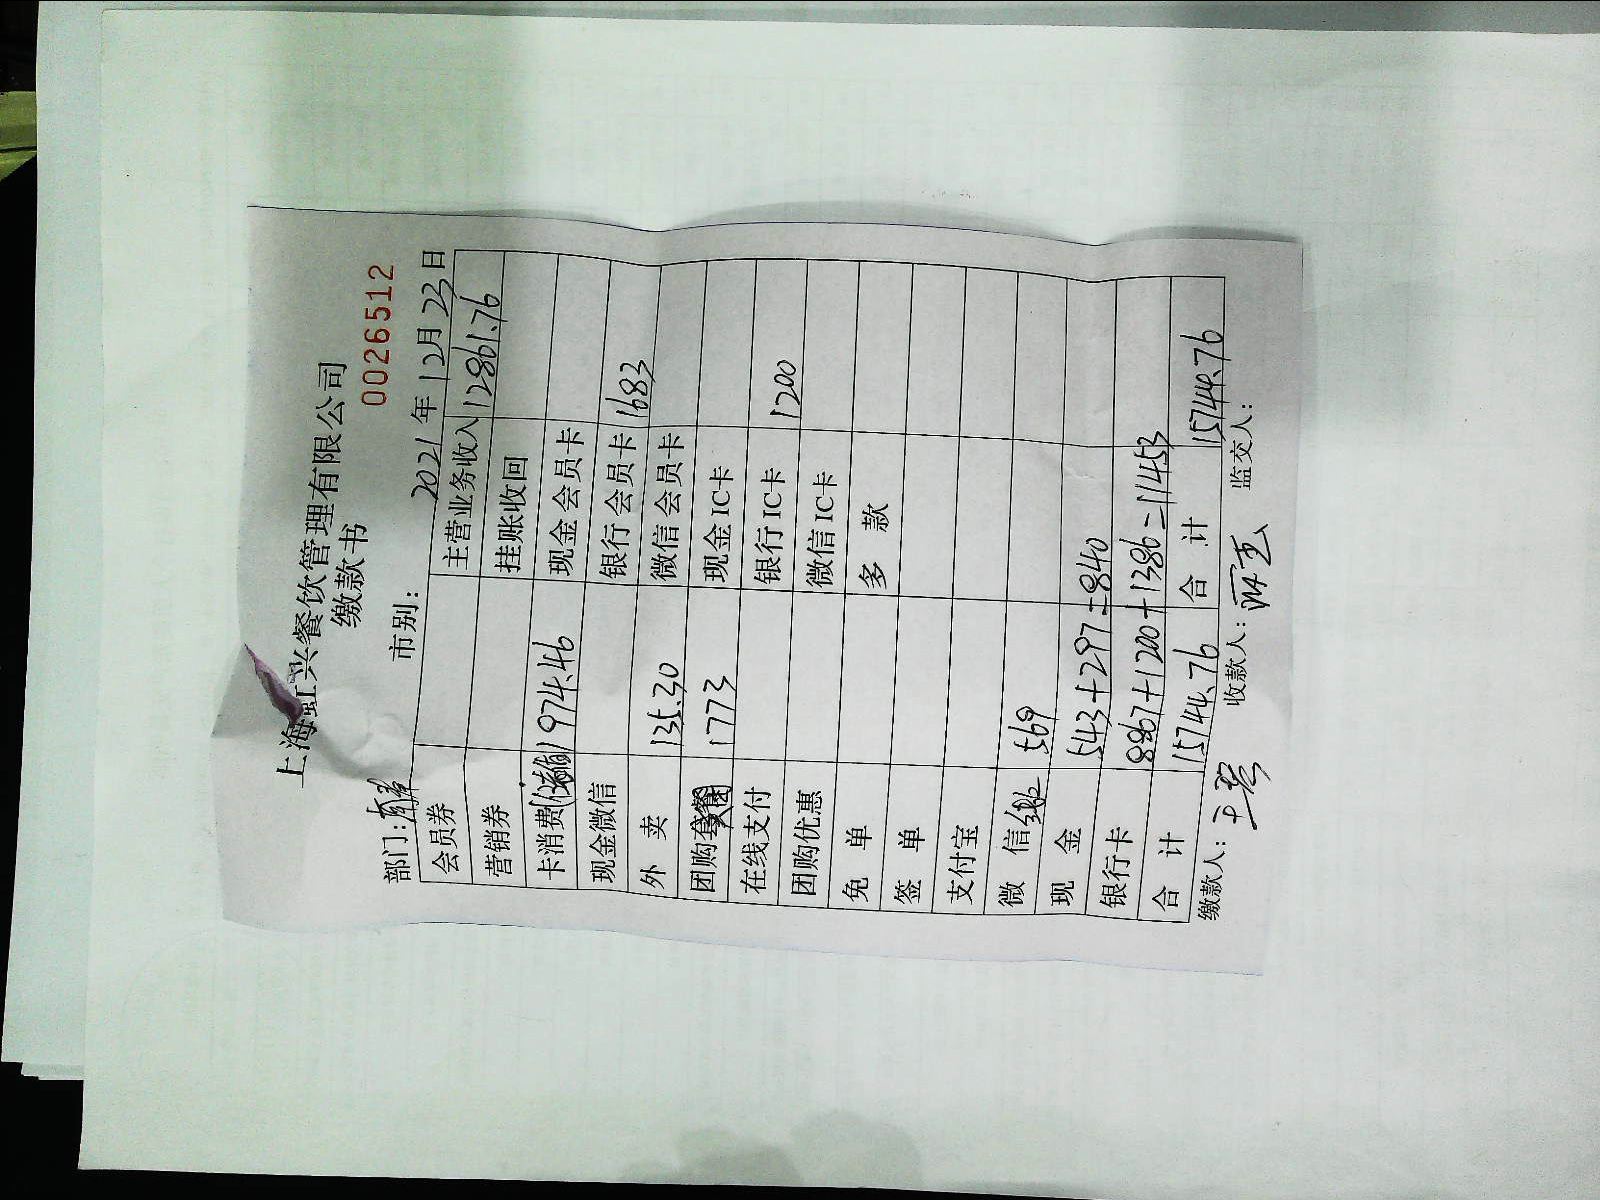 上海虹兴餐饮管理有限公司
缴款书
0026512
部门: 市别: 2021年12月23日
会员券 主营业务收入 12861.76
营销券 挂账收回
卡消费(储值)974.46 现金会员卡
现金微信 银行会员卡 1683
外 卖 135.30 微信会员卡
团购 1773 现金IC卡
在线支付 银行IC卡 1200
团购优惠 微信IC卡
免 单 多 款
签 单
支付宝
微 信 569
现 金 543+297=840
银行卡 8867+1200+1386=11453
合 计 15744.76 合 计 15744.76
缴款人: 收款人: 监交人: